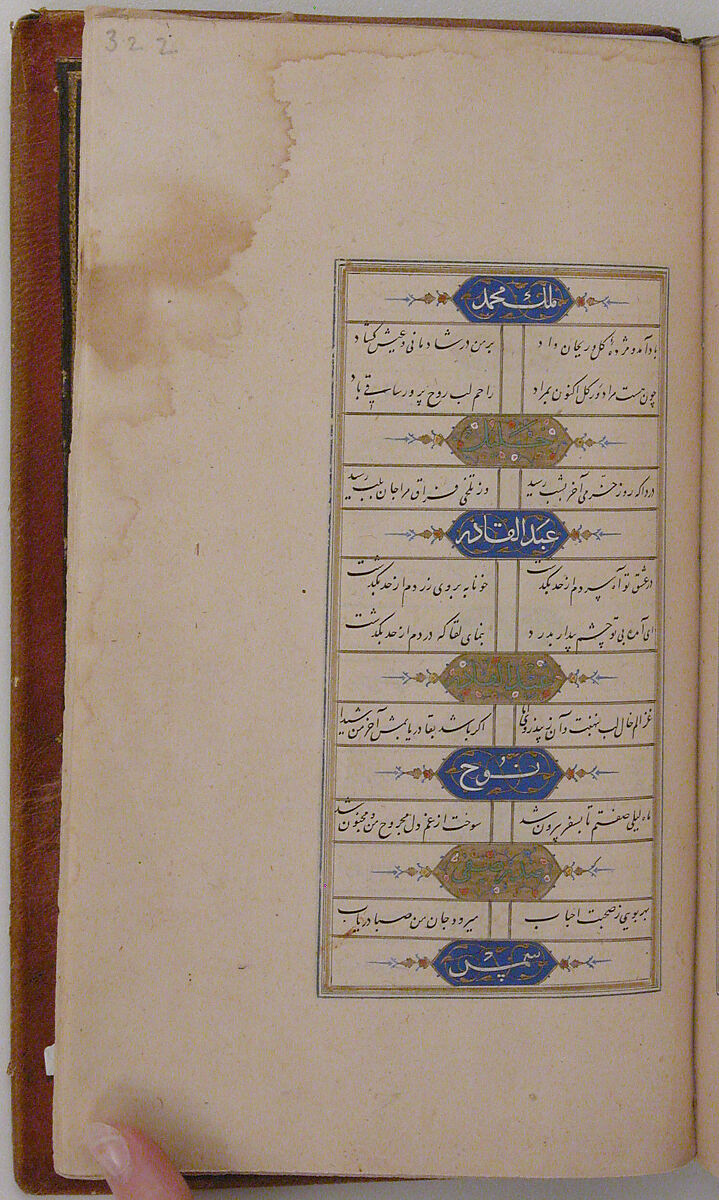 322
ملک محمد
باد آمد و مژدهٔ گل و ریحان داد    بر من در شادمانی و عیش گشاد
چون هست مراد ور گل اکنون بمراد    راحم لب روح پرور ساقی باد
خلیل
دردا که روز خرمی آخر بشب رسید    وز تلخی فراق مرا جان بلب رسید
عبد القادر
در عشق تو آه سردم از حد بگذشت    خونابه بروی زردم از حد بگذشت
ای آمده بی تو چشم بیدار بدرد    بنمای لقا که دردم از حد بگذشت
عبد القادر
غزالم خال لب بنهفت و آن    اگر باشد بقا دریابمش آخر من شیدا
نوح
ماه لیلی صفتم تا بسفر بیرون شد    سوخت از غم دل مجروح من و مجنون شد
صفی
بهر بویی ز صحبت احباب    میرود جان من صبا دریاب
شمس